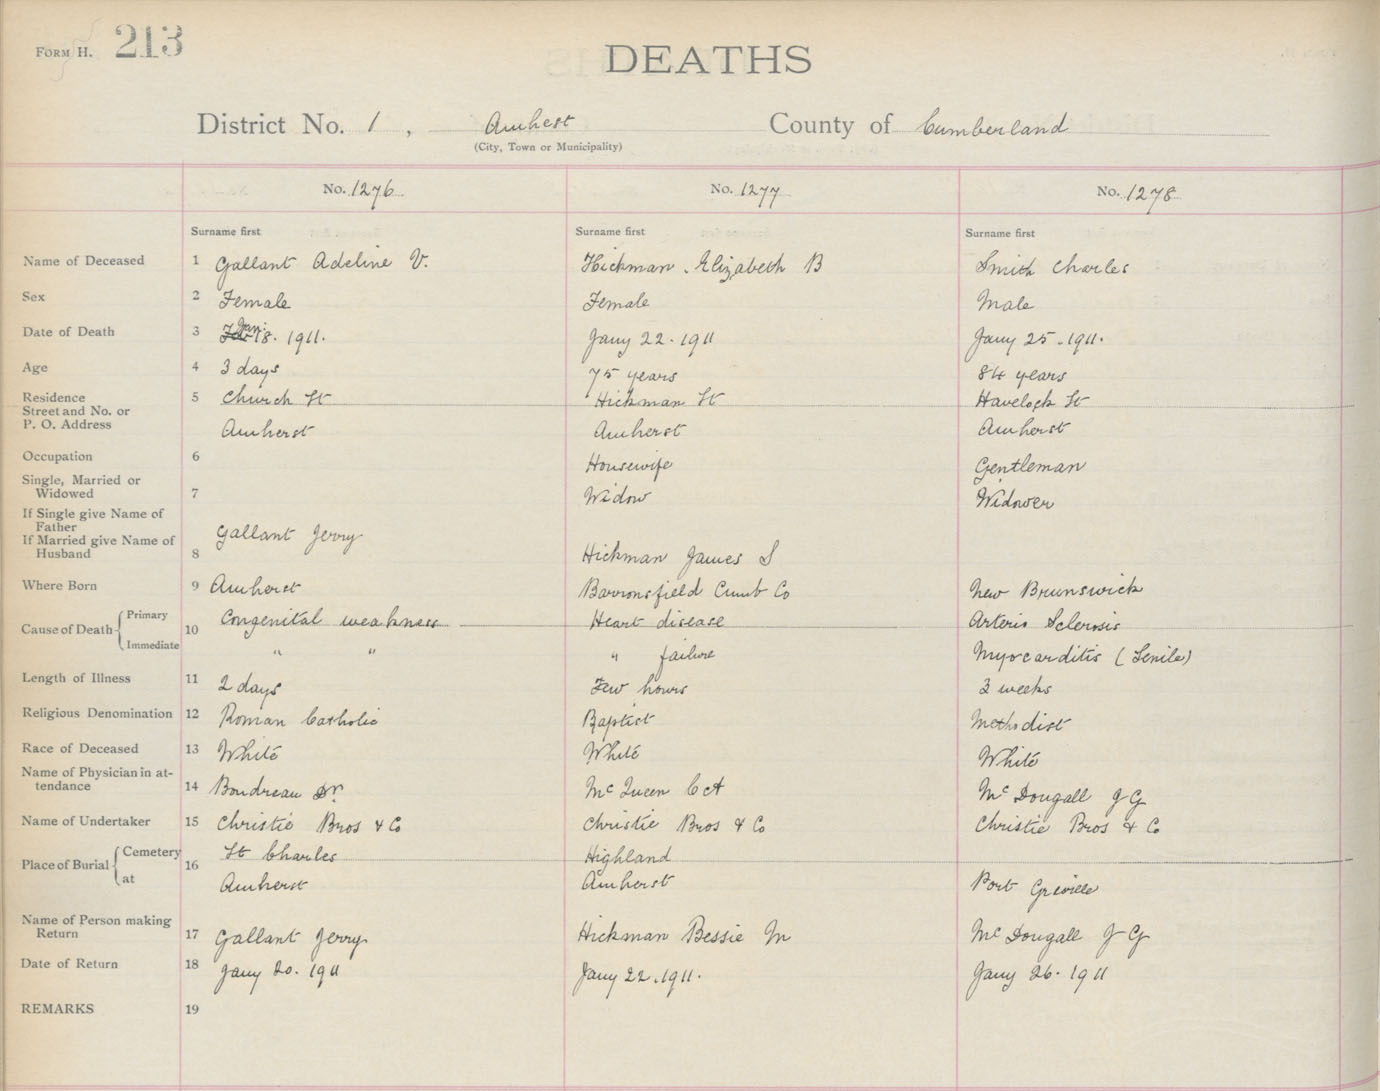 FORM H. 213
DEATHS
District No. 1, Amhest County of Cumberland
(City, Town or Municipality)
No. 1276 No. 1277 No. 1278
Surname first Surname first Surname first
Name of Deceased 1 Gallant Adeline V. Hickman Elizabeth B Smith Charles
Sex 2 Female Female Male
Date of Death 3 Jan. 18. 1911. Jany 22. 1911 Jany 25. 1911.
Age 4 3 days 75 years 84 years
Residence 5 Church St Hickman St Havelock St
Street and No. or
P. O. Address Amherst Amherst Amherst
Occupation 6 Housewife Gentleman
Single, Married or
Widowed 7 Widow Widower
If Single give Name of
Father Gallant Jerry
If Married give Name of
Husband 8 Hickman James S
Where Born 9 Amherst Barronsfield Cumb Co New Brunswick
Cause of Death Primary 10 Congenital weakness Heart disease Arterio Sclerosis
Immediate " " " failure Myocarditis (Senile)
Length of Illness 11 2 days Few hours 3 weeks
Religious Denomination 12 Roman Catholic Baptist Methodist
Race of Deceased 13 White White White
Name of Physician in at-
tendance 14 Boudreau Dr. McQueen C A McDougall J G
Name of Undertaker 15 Christie Bros & Co Christie Bros & Co Christie Bros & Co
Place of Burial Cemetery 16 St Charles Highland
at Amherst Amherst Port Greville
Name of Person making
Return 17 Gallant Jerry Hickman Bessie M McDougall J G
Date of Return 18 Jany 20. 1911 Jany 22. 1911. Jany 26. 1911
REMARKS 19